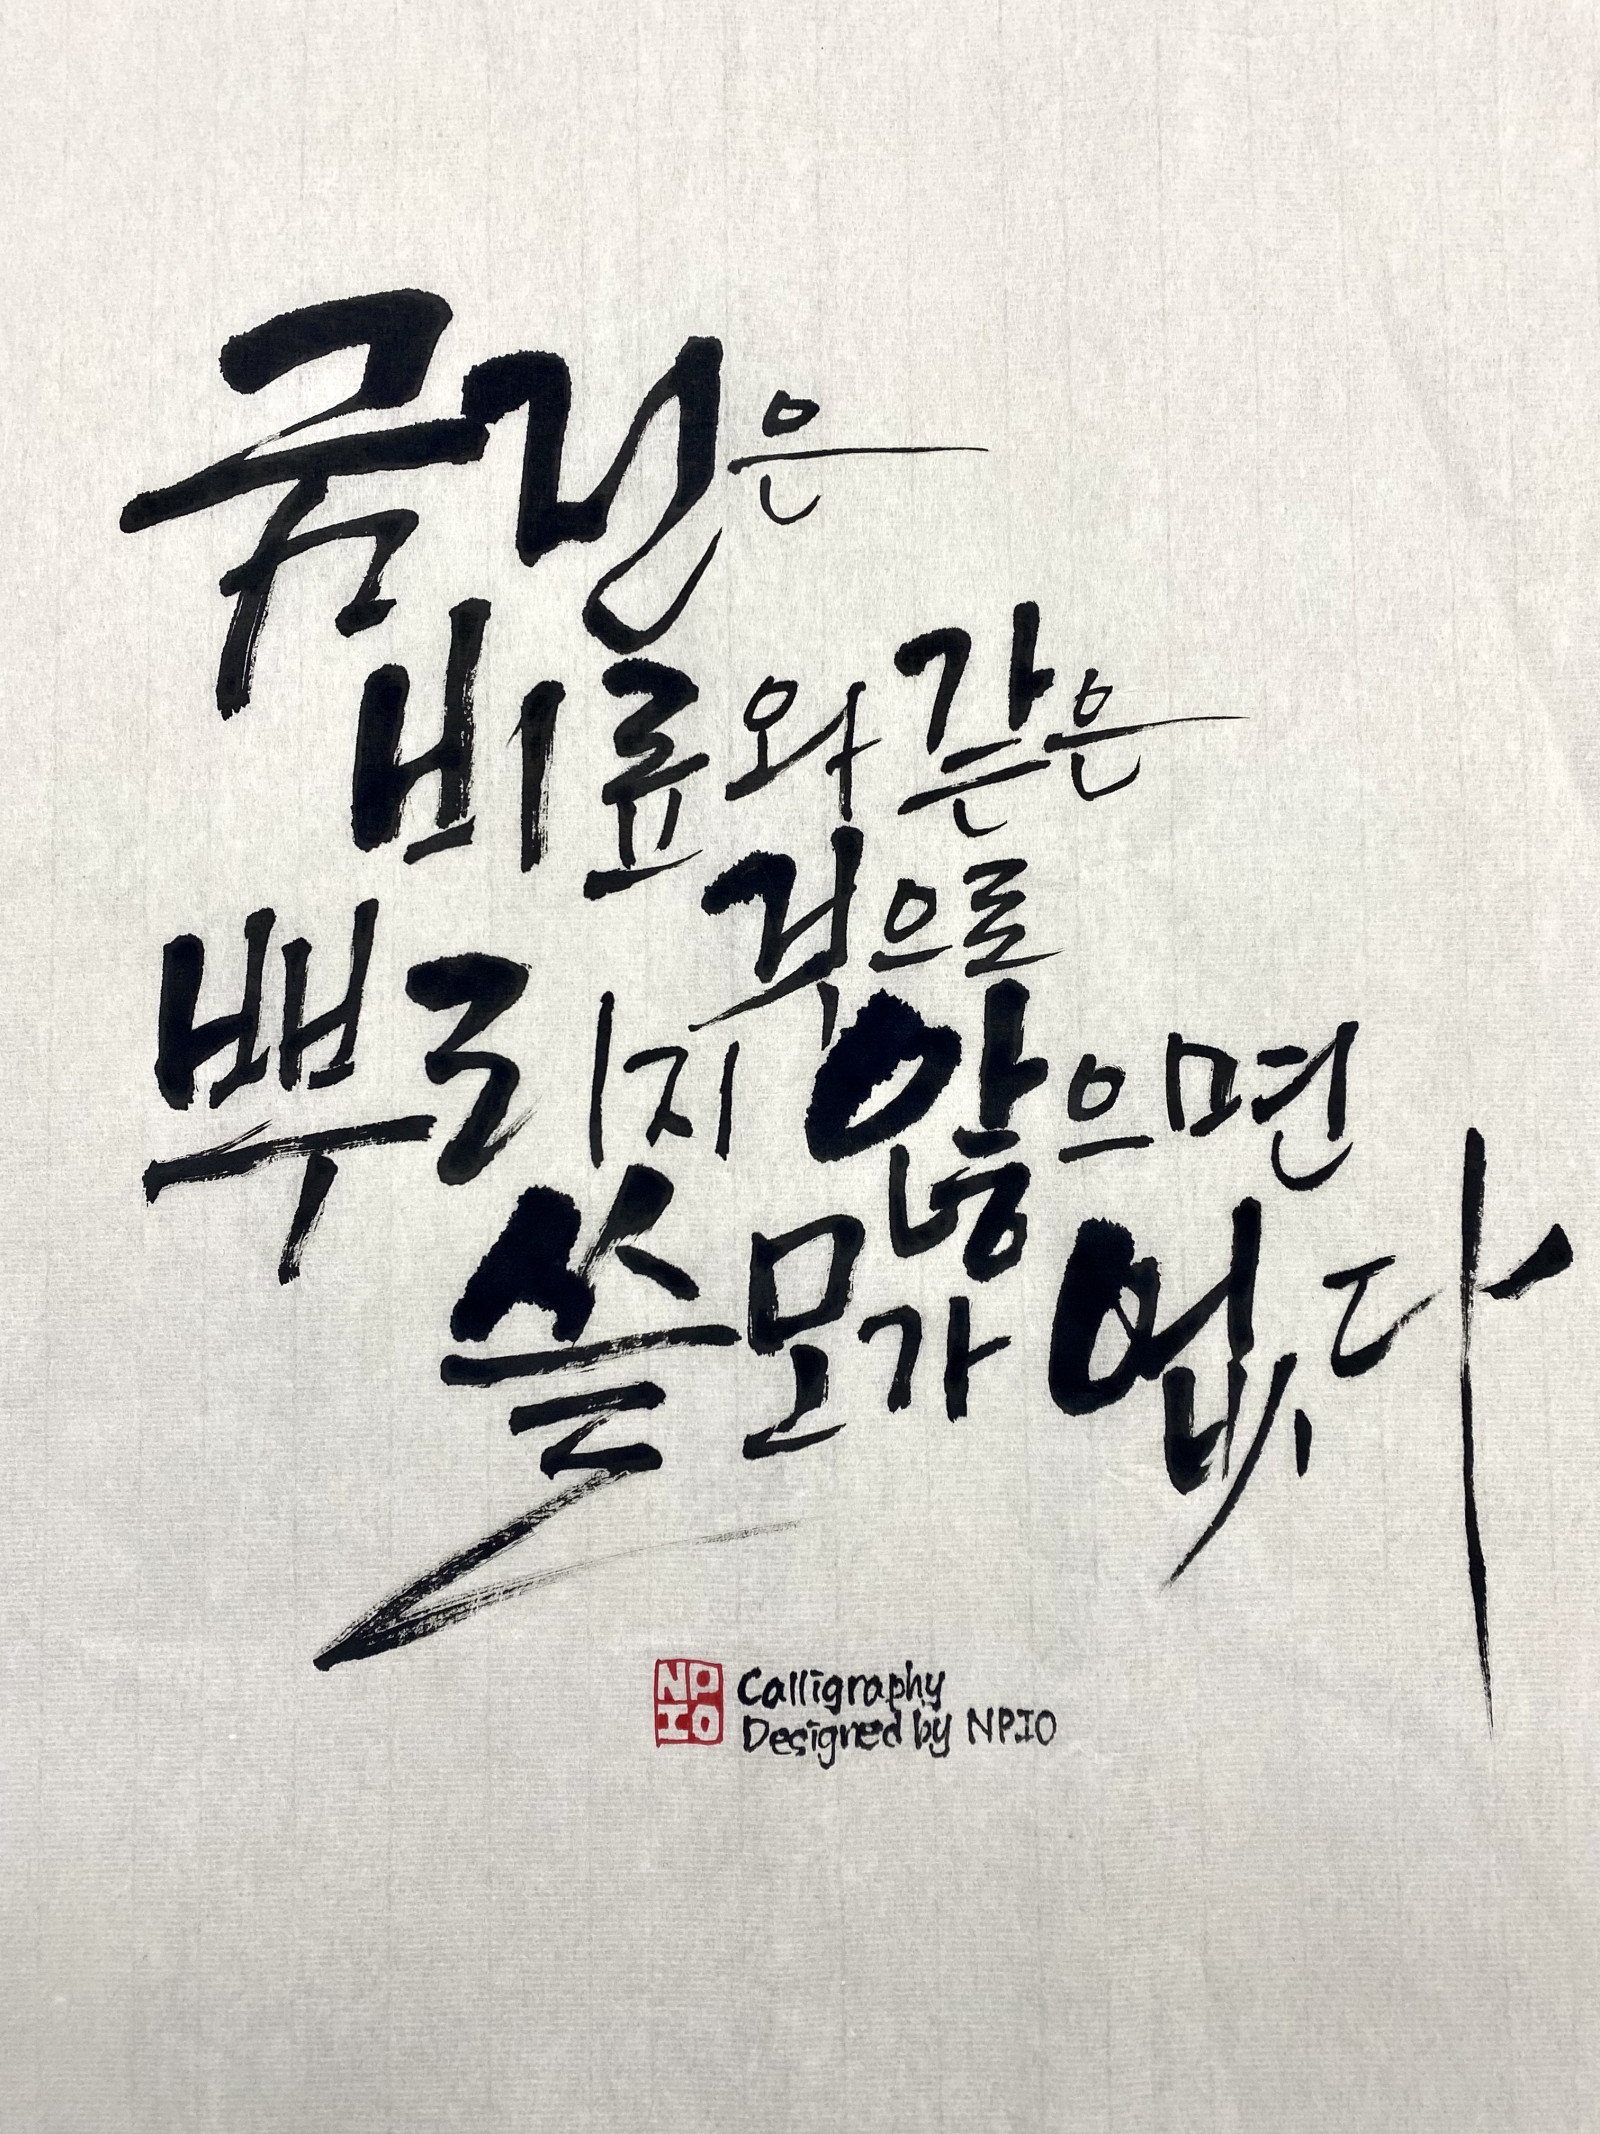 금전은
비료와 같은
것으로
뿌리지 않으면
쓸모가 없다
NP
IO
Calligraphy
Designed by NPIO